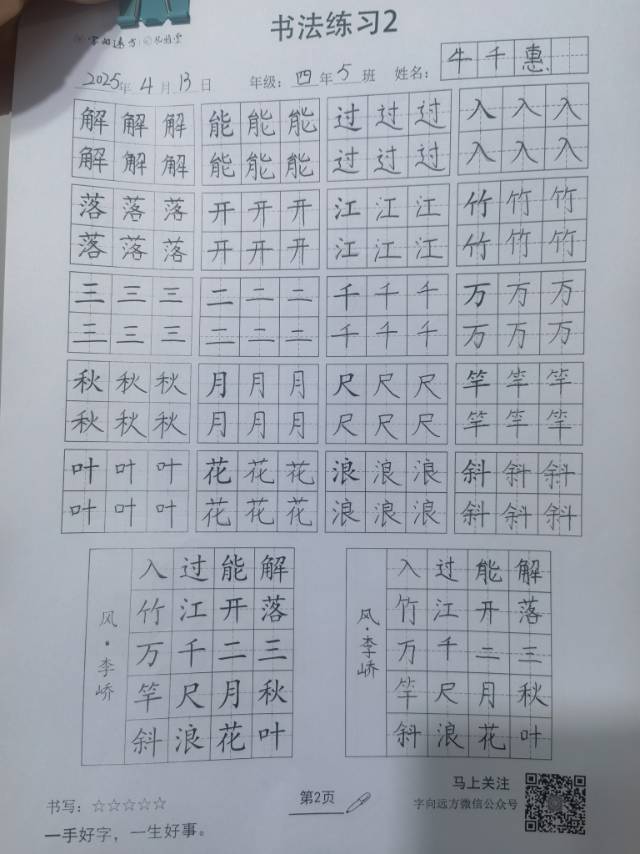 书法练习2
字向远方
2025年4月13日 年级：四年5班 姓名：牛千惠
解解解 能能能 过过过 入入入
解解解 能能能 过过过 入入入
落落落 开开开 江江江 竹竹竹
落落落 开开开 江江江 竹竹竹
三三三 二二二 千千千 万万万
三三三 二二二 千千千 万万万
秋秋秋 月月月 尺尺尺 竿竿竿
秋秋秋 月月月 尺尺尺 竿竿竿
叶叶叶 花花花 浪浪浪 斜斜斜
叶叶叶 花花花 浪浪浪 斜斜斜
解落三秋叶
能开二月花
过江千尺浪
入竹万竿斜
风·李峤
解落三秋叶
能开二月花
过江千尺浪
入竹万竿斜
风·李峤
书写：☆☆☆☆☆
一手好字，一生好事。
第2页
马上关注
字向远方微信公众号